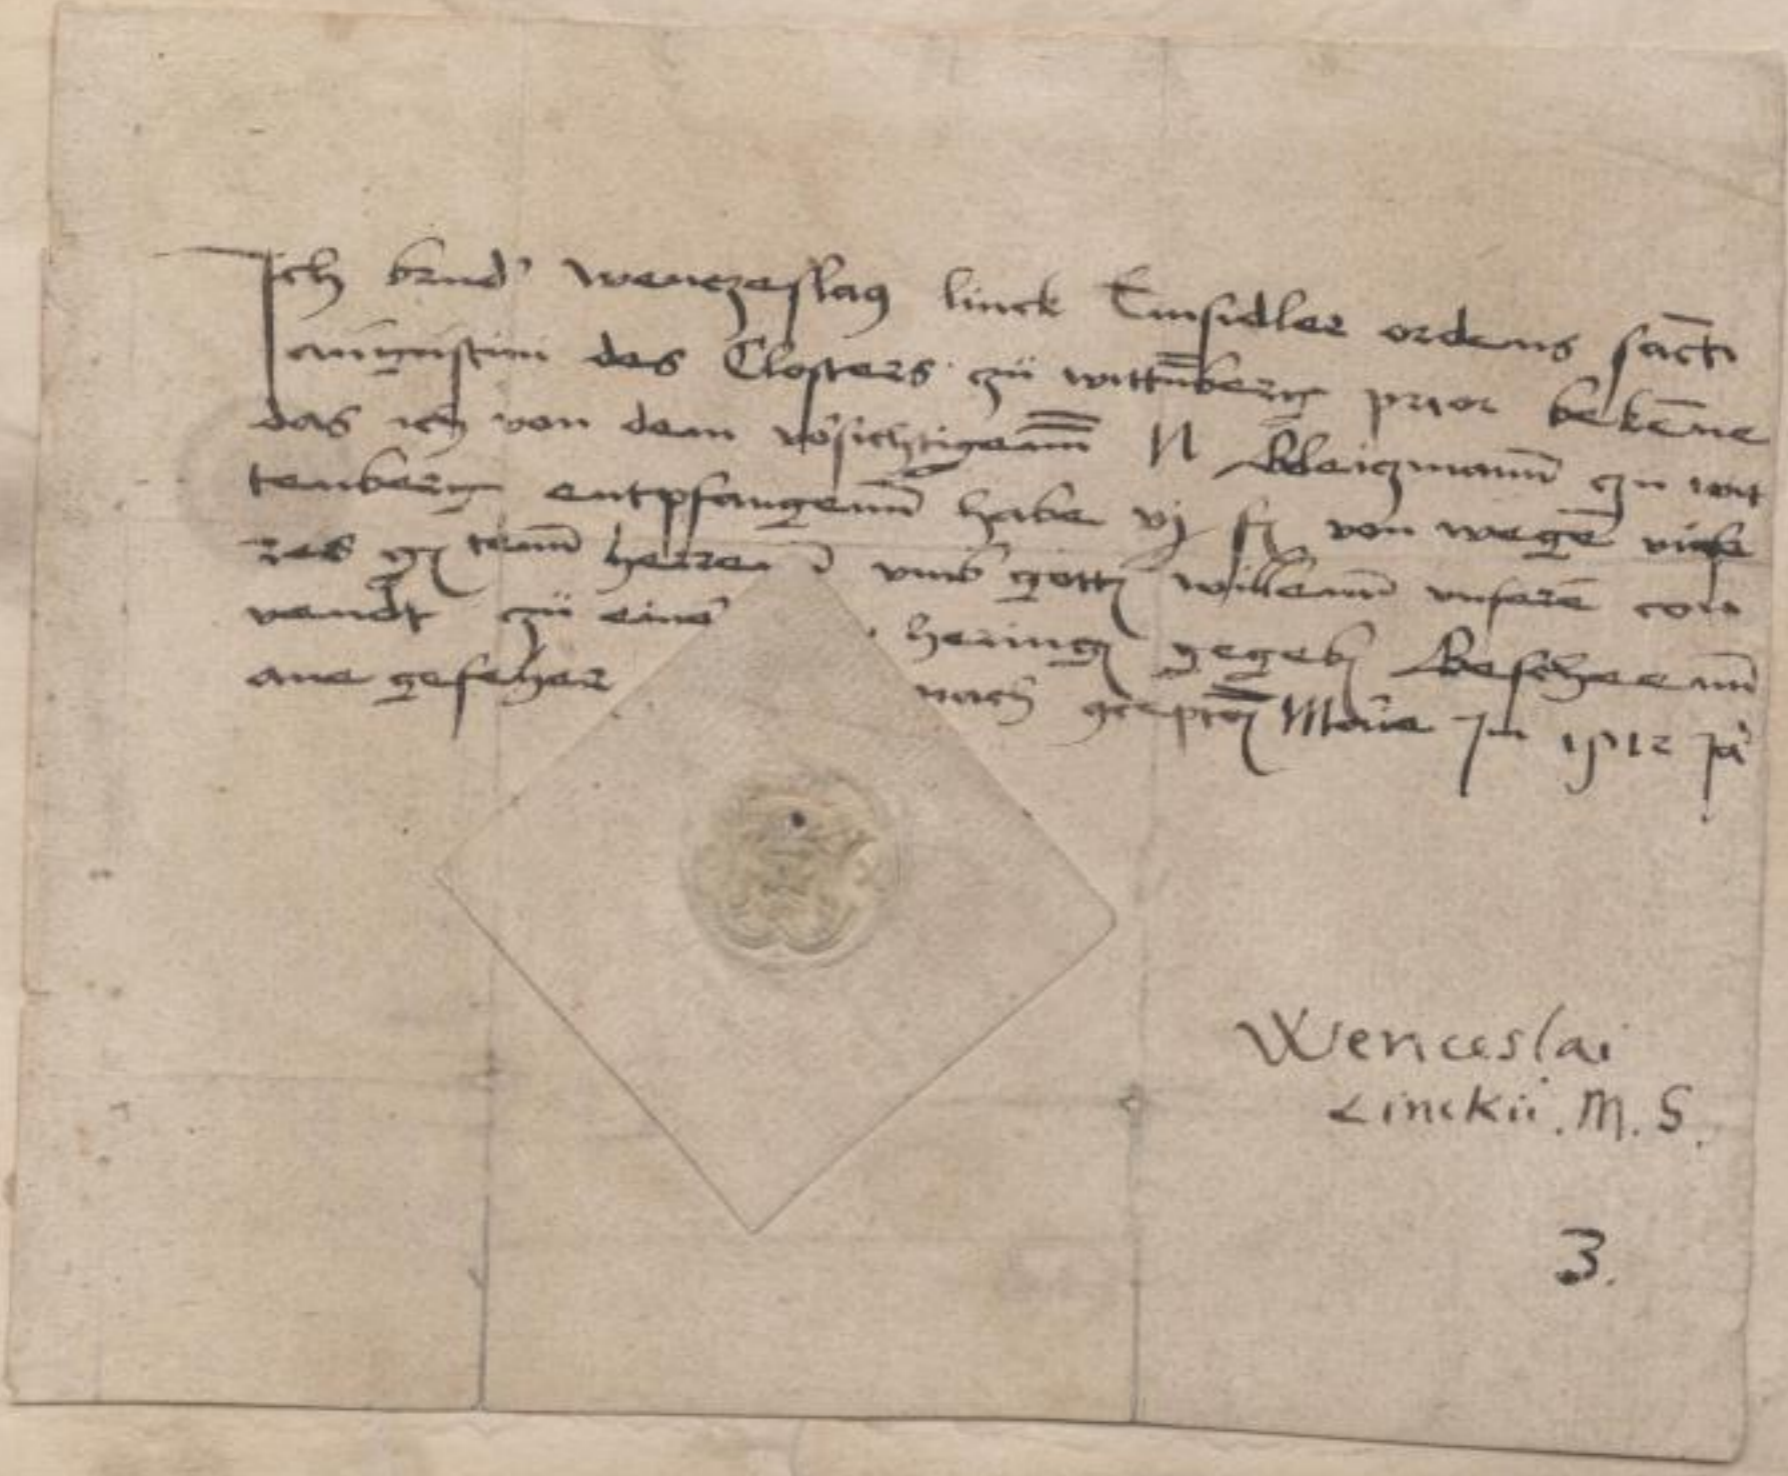 Ich brud' wenczeslaus linck Einsidler ordens sacti
augustini des Closters zü wittēberg prior bekēne
das ich von dem vorsichtigenn N Bleiczmann zu wit
tenberg entpfangenn habe vj fl von wegē vnse
res herren vmb gottes willenn vnserē con
vendt zü eine' hering gegeb Gescheenn
ane geseher nach Marie Jn 1512 ja'
Wenceslai
Linckii. M. S.
3.